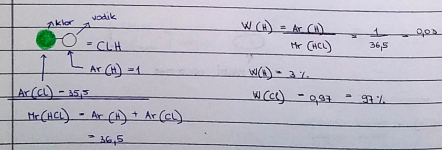 klor
vodik
= CLH
Ar(H) = 1
Ar(Cl) = 35,5
Mr(HCl) = Ar(H) + Ar(Cl)
= 36,5
W(H) = Ar(H) / Mr(HCl) = 1 / 36,5 = 0,03
W(H) = 3%
W(Cl) = 0,97 = 97%